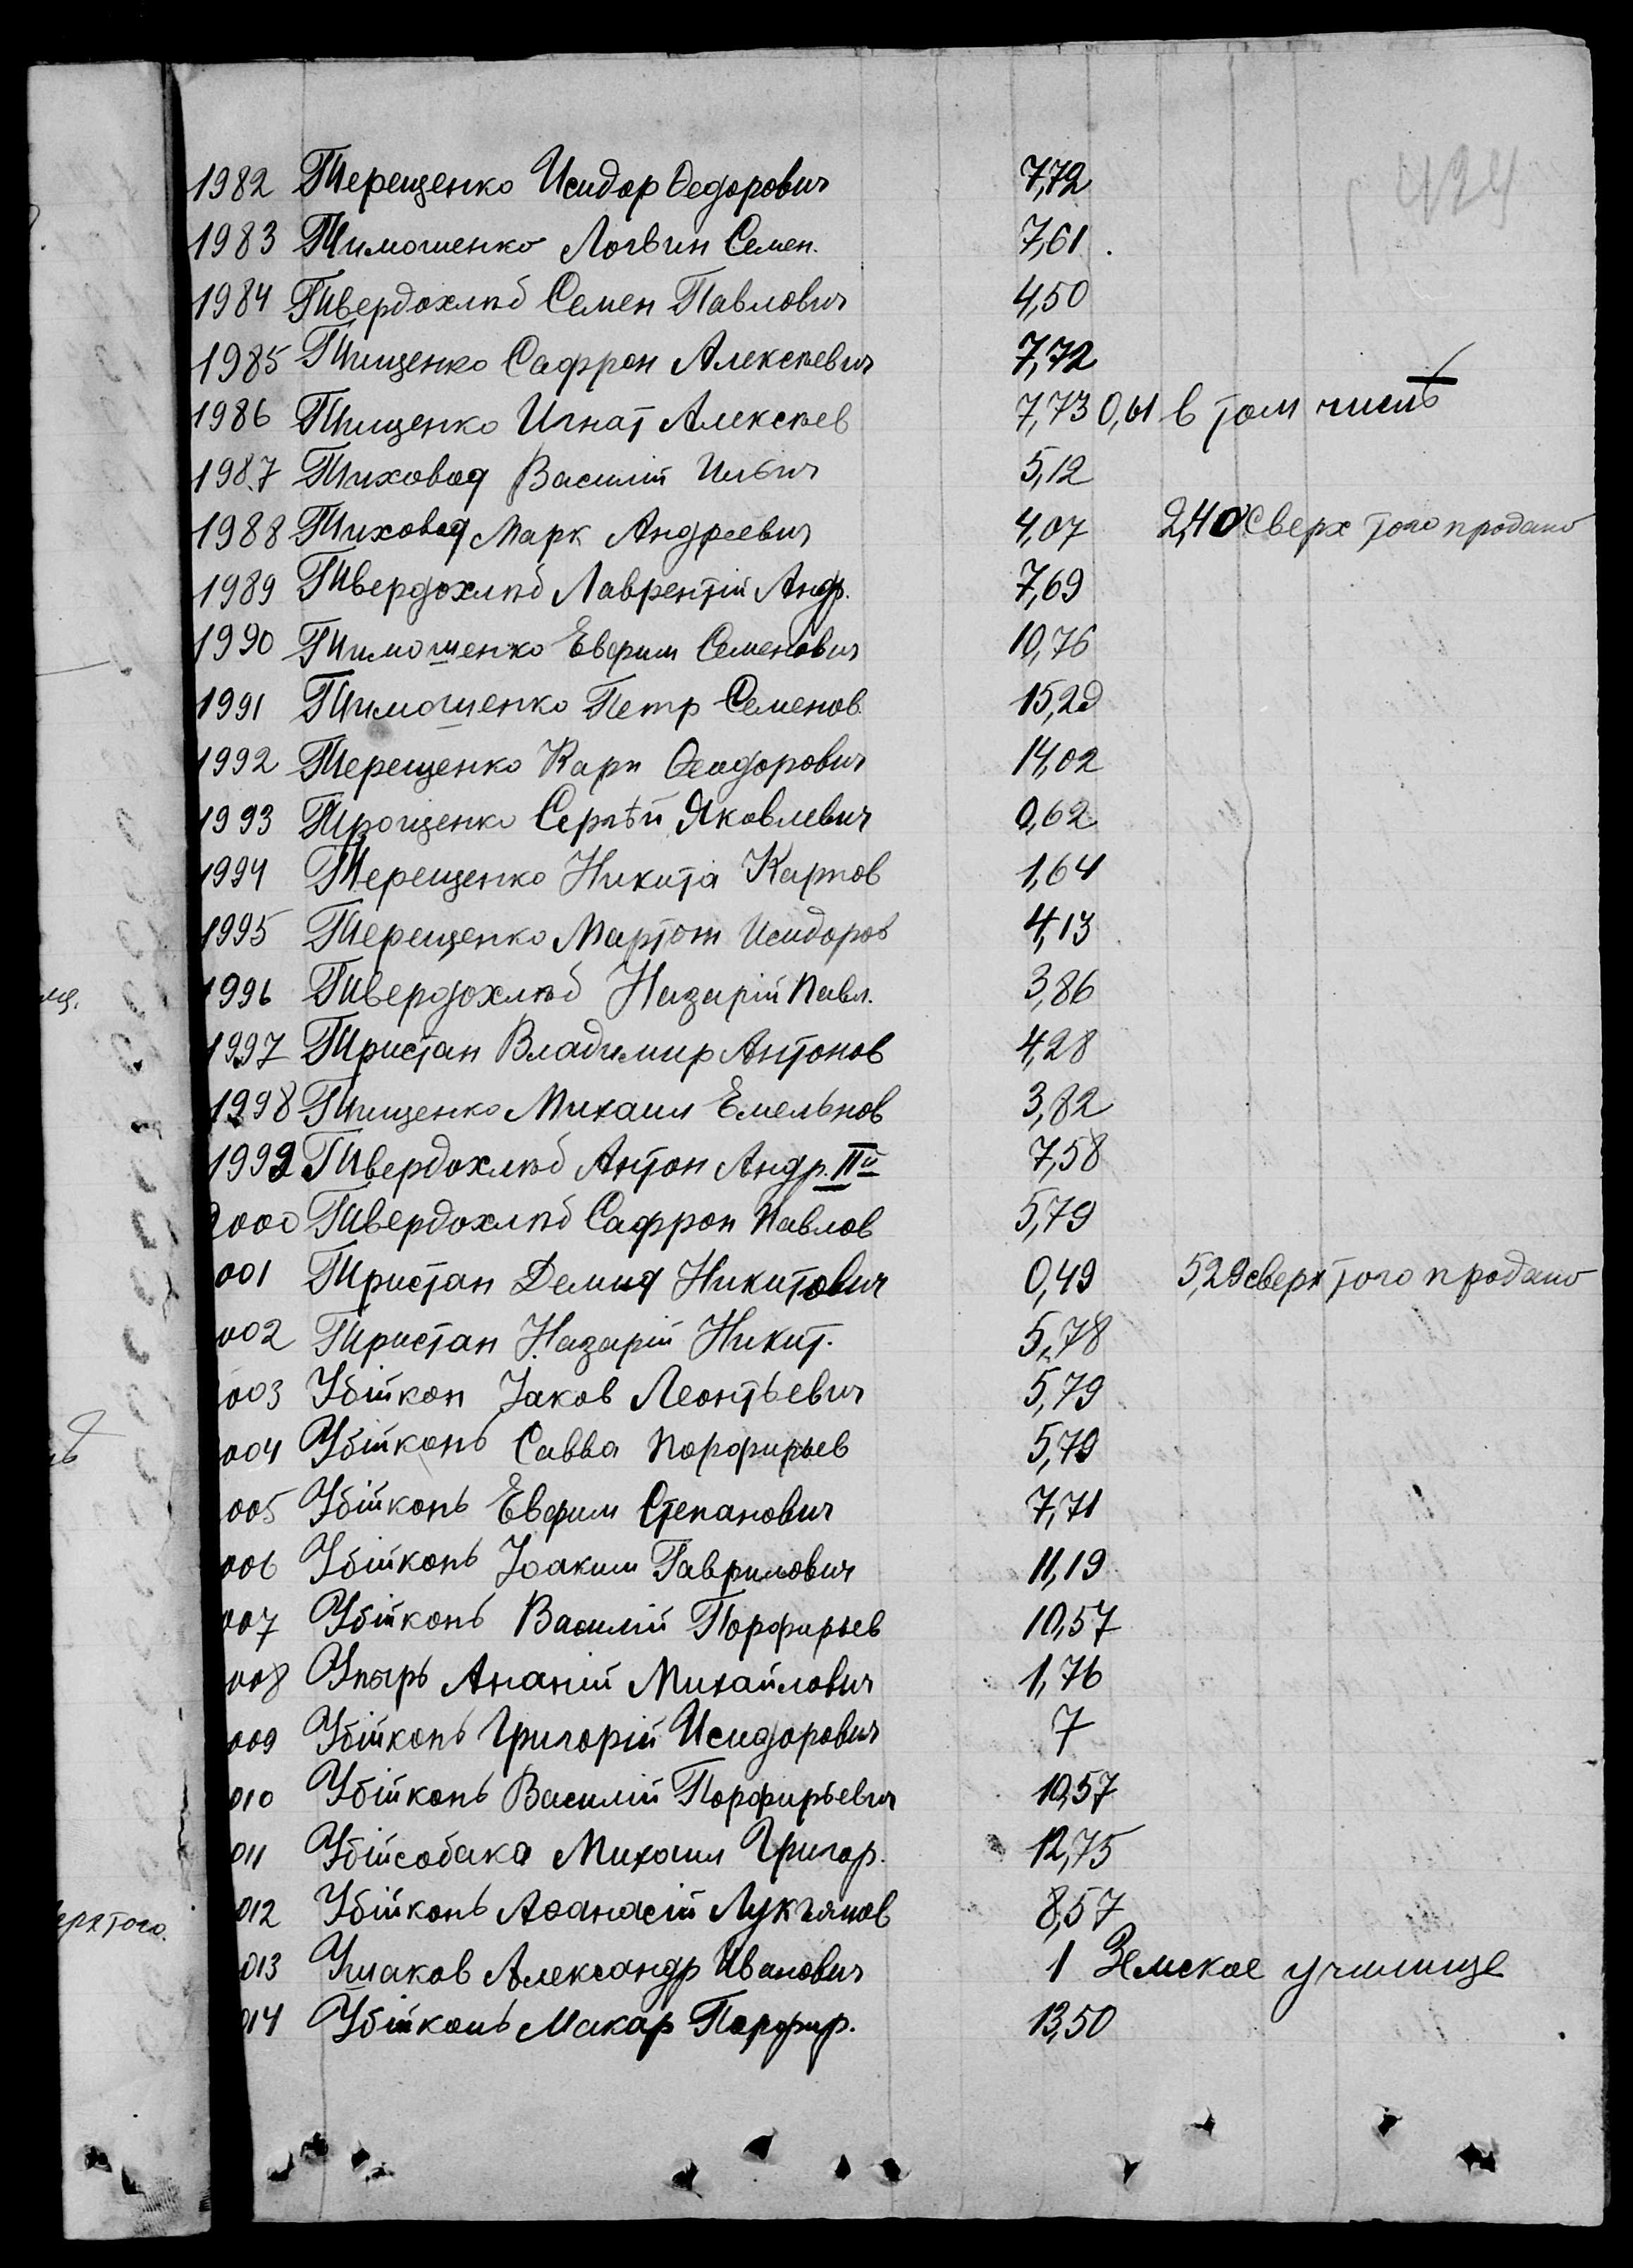 424
1982 Терещенко Исидор Ѳедорович 7,72
1983 Тимошенко Логвин Семен. 7,61
1984 Твердохлѣб Семен Павлович 4,50
1985 Тищенко Сафрон Алексѣевич 7,72
1986 Тищенко Игнат Алексѣев 7,73 0,61 в том числѣ
1987 Тиховод Василій Ильич 5,12
1988 Тиховод Марк Андреевич 4,07 2,40 Сверх того продано
1989 Твердохлѣб Лаврентій Андр. 7,69
1990 Тимошенко Евфим Семенович 10,76
1991 Тимошенко Петр Семенов. 15,2
1992 Терещенко Карп Ѳеодорович 14,02
1993 Трощенко Сергѣй Яковлевич 0,62
1994 Терещенко Никита Карпов 1,64
1995 Терещенко Мартын Исидоров 4,13
1996 Твердохлѣб Назарій Павл. 3,86
1997 Тристан Владимир Антонов 4,28
1998 Тищенко Михаил Емельнов 3,82
1999 Твердохлѣб Антон Андр. IIй 7,58
2000 Твердохлѣб Сафрон Павлов 5,79
001 Тристан Демид Никитович 0,49 5,29 сверх того продано
002 Тристан Назарій Никит. 5,78
003 Убійкон Іаков Леонтьевич 5,79
004 Убійконь Савва Порфирьев 5,79
005 Убійконь Евфим Степанович 7,71
006 Убійконь Іоаким Гаврилович 11,19
007 Убійконь Василій Порфирьев 10,57
008 Упырь Ананій Михайлович 1,76
009 Убійконь Григорій Исидорович 7
010 Убійконь Василій Порфирьевич 10,57
011 Убійсобака Михаил Григор. 12,75
012 Убійконь Аѳанасій Лукъянов 8,57
013 Ушаков Александр Иванович 1 Земское училище
014 Убійконь Макар Порфир. 13,50